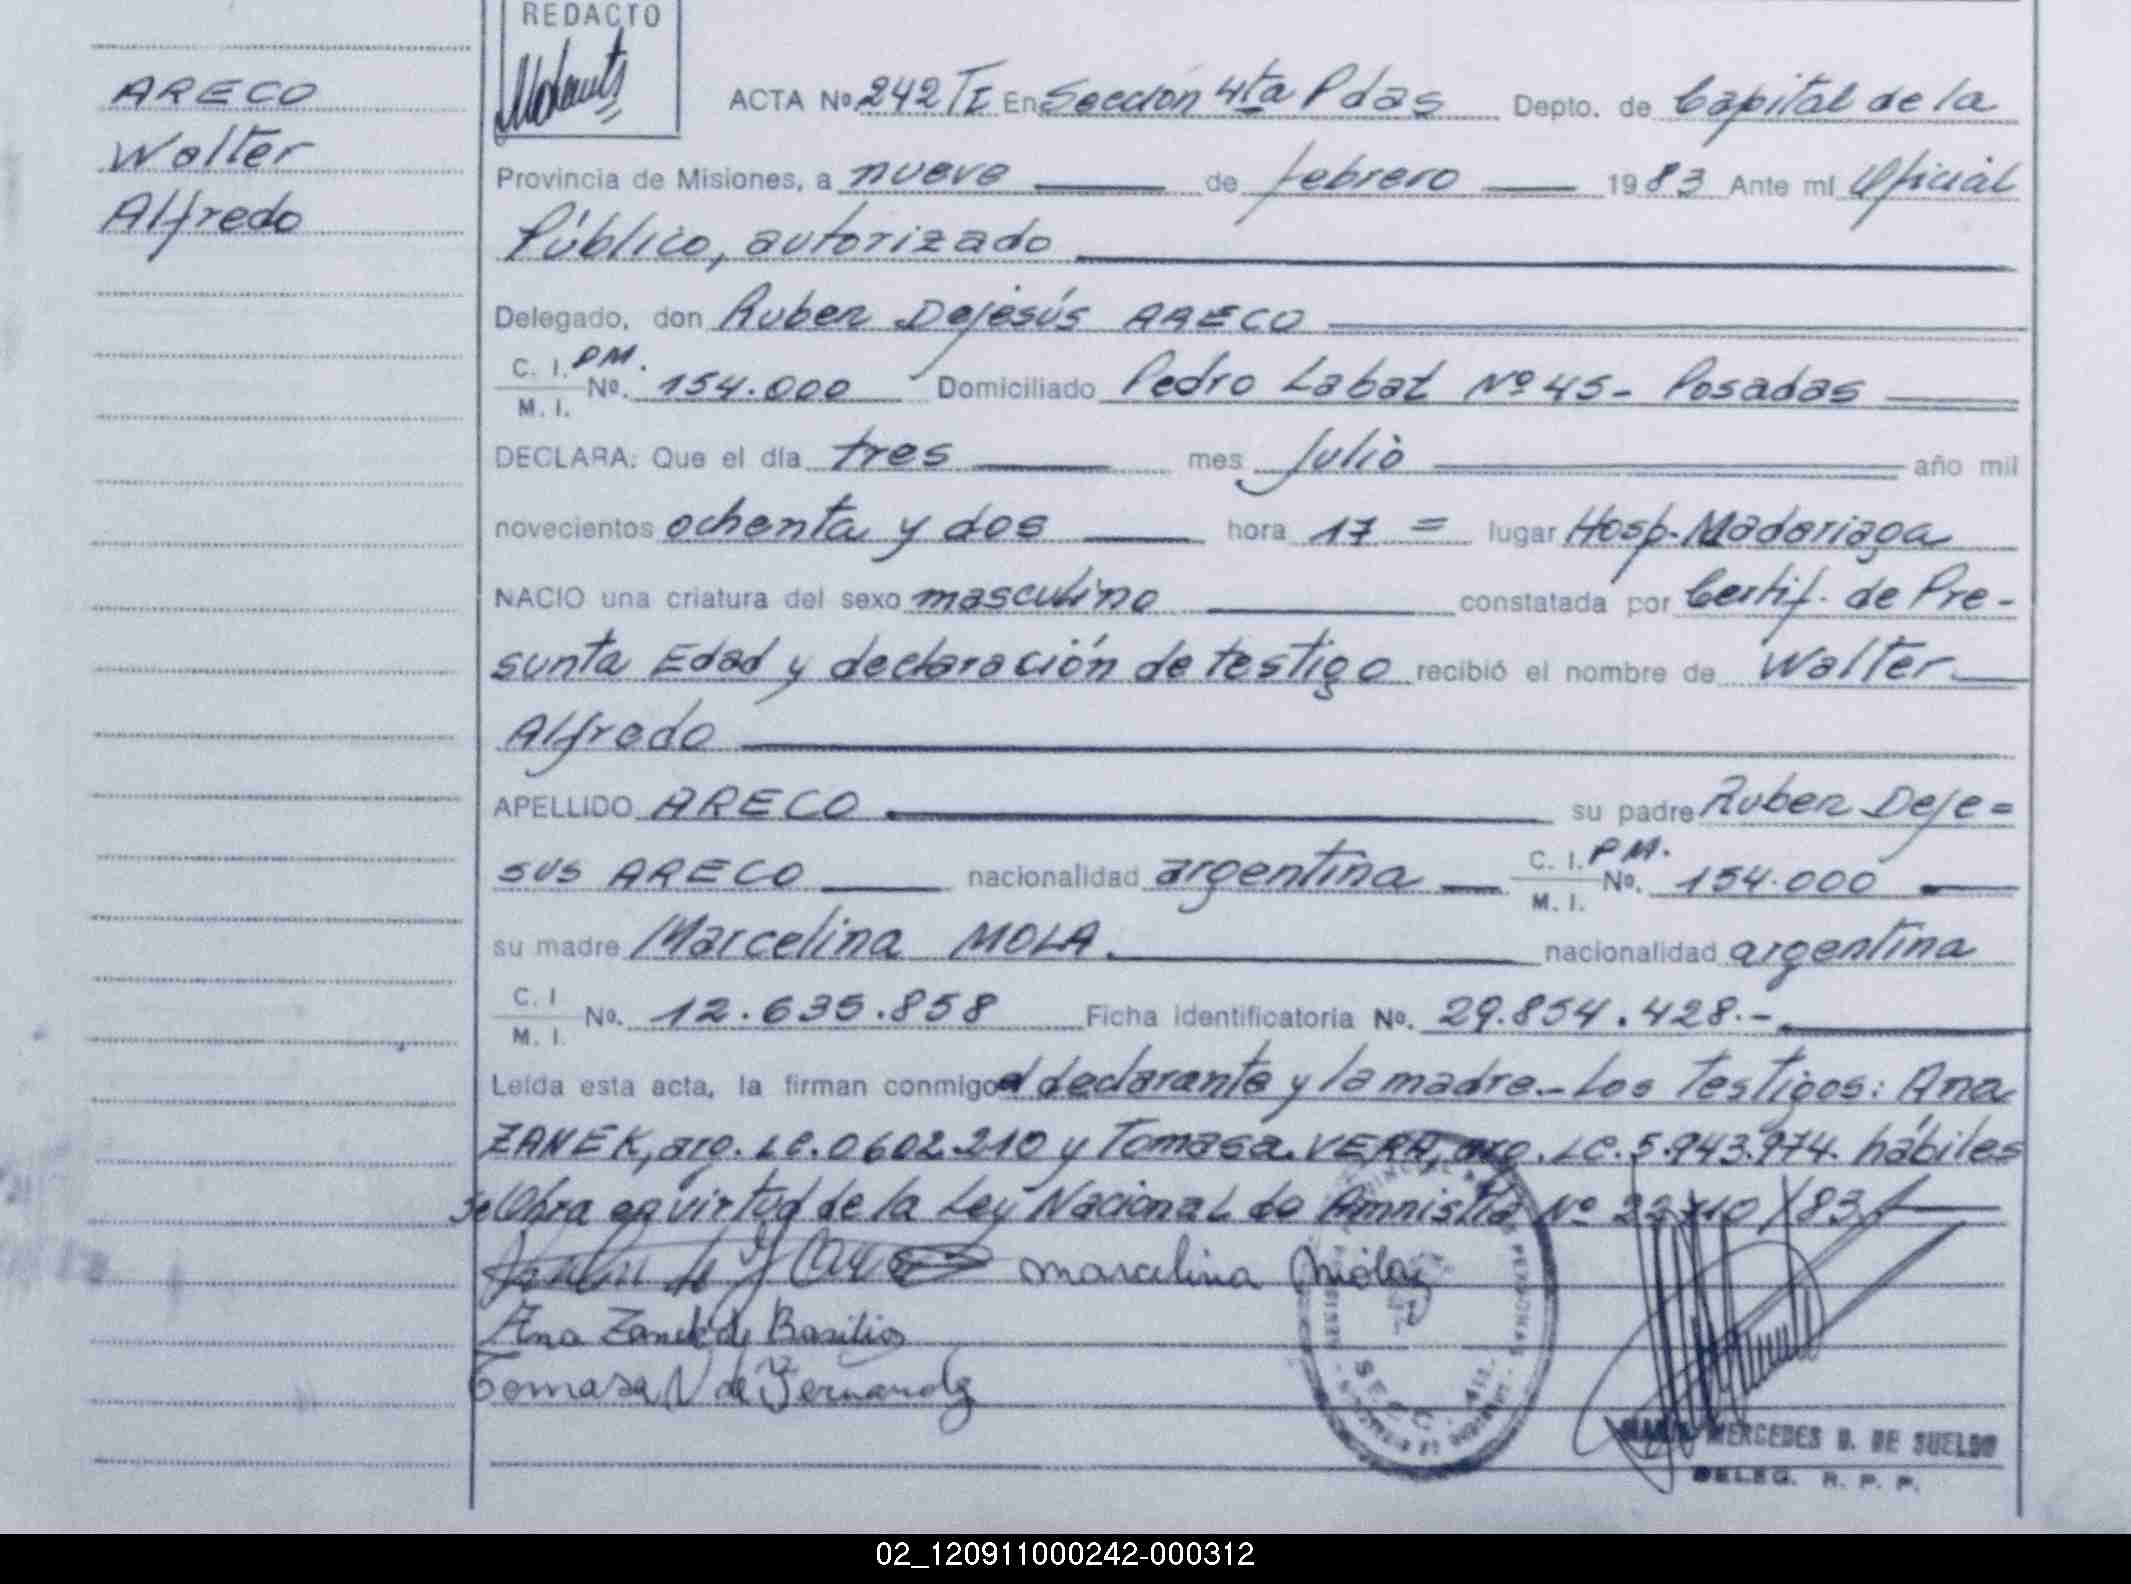 REDACTO
ARECO
Walter
Alfredo
ACTA Nº 242 TI En Sección 4ta Pdas Depto. de Capital de la
Provincia de Misiones, a nueve de febrero 1983 Ante mí Oficial
Público, autorizado
Delegado, don Ruben Dejesús ARECO
C. I. P.M.
M. I. Nº. 154.000 Domiciliado Pedro Labat Nº 45 - Posadas
DECLARA: Que el día tres mes julio año mil
novecientos ochenta y dos hora 17 = lugar Hosp. Madariaga
NACIO una criatura del sexo masculino constatada por Certif. de Pre-
sunta Edad y declaración de testigo recibió el nombre de Walter
Alfredo
APELLIDO ARECO su padre Ruben Deje=
sus ARECO nacionalidad argentina C. I. P.M. M. I. Nº. 154.000
su madre Marcelina MOLA. nacionalidad argentina
C. I M. I. Nº. 12.635.858 Ficha identificatoria Nº. 29.854.428.-
Leída esta acta, la firman conmigo el declarante y la madre.- Los testigos: Ana
ZANEK, arg. LC. 0602.210 y Tomasa VERA, arg. LC. 5.943.974. hábiles
Se Obra en virtud de la Ley Nacional de Amnistía Nº /83
marcelina mola
Ana Zanek de Basilio
Tomasa V de Fernandez
SECC. 4ta.
MERCEDES D. DE SUELDO
DELEG. R. P. P.
02_120911000242-000312